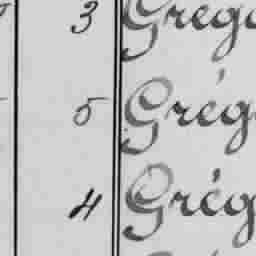 3 Grego
5 Grég
4 Grég